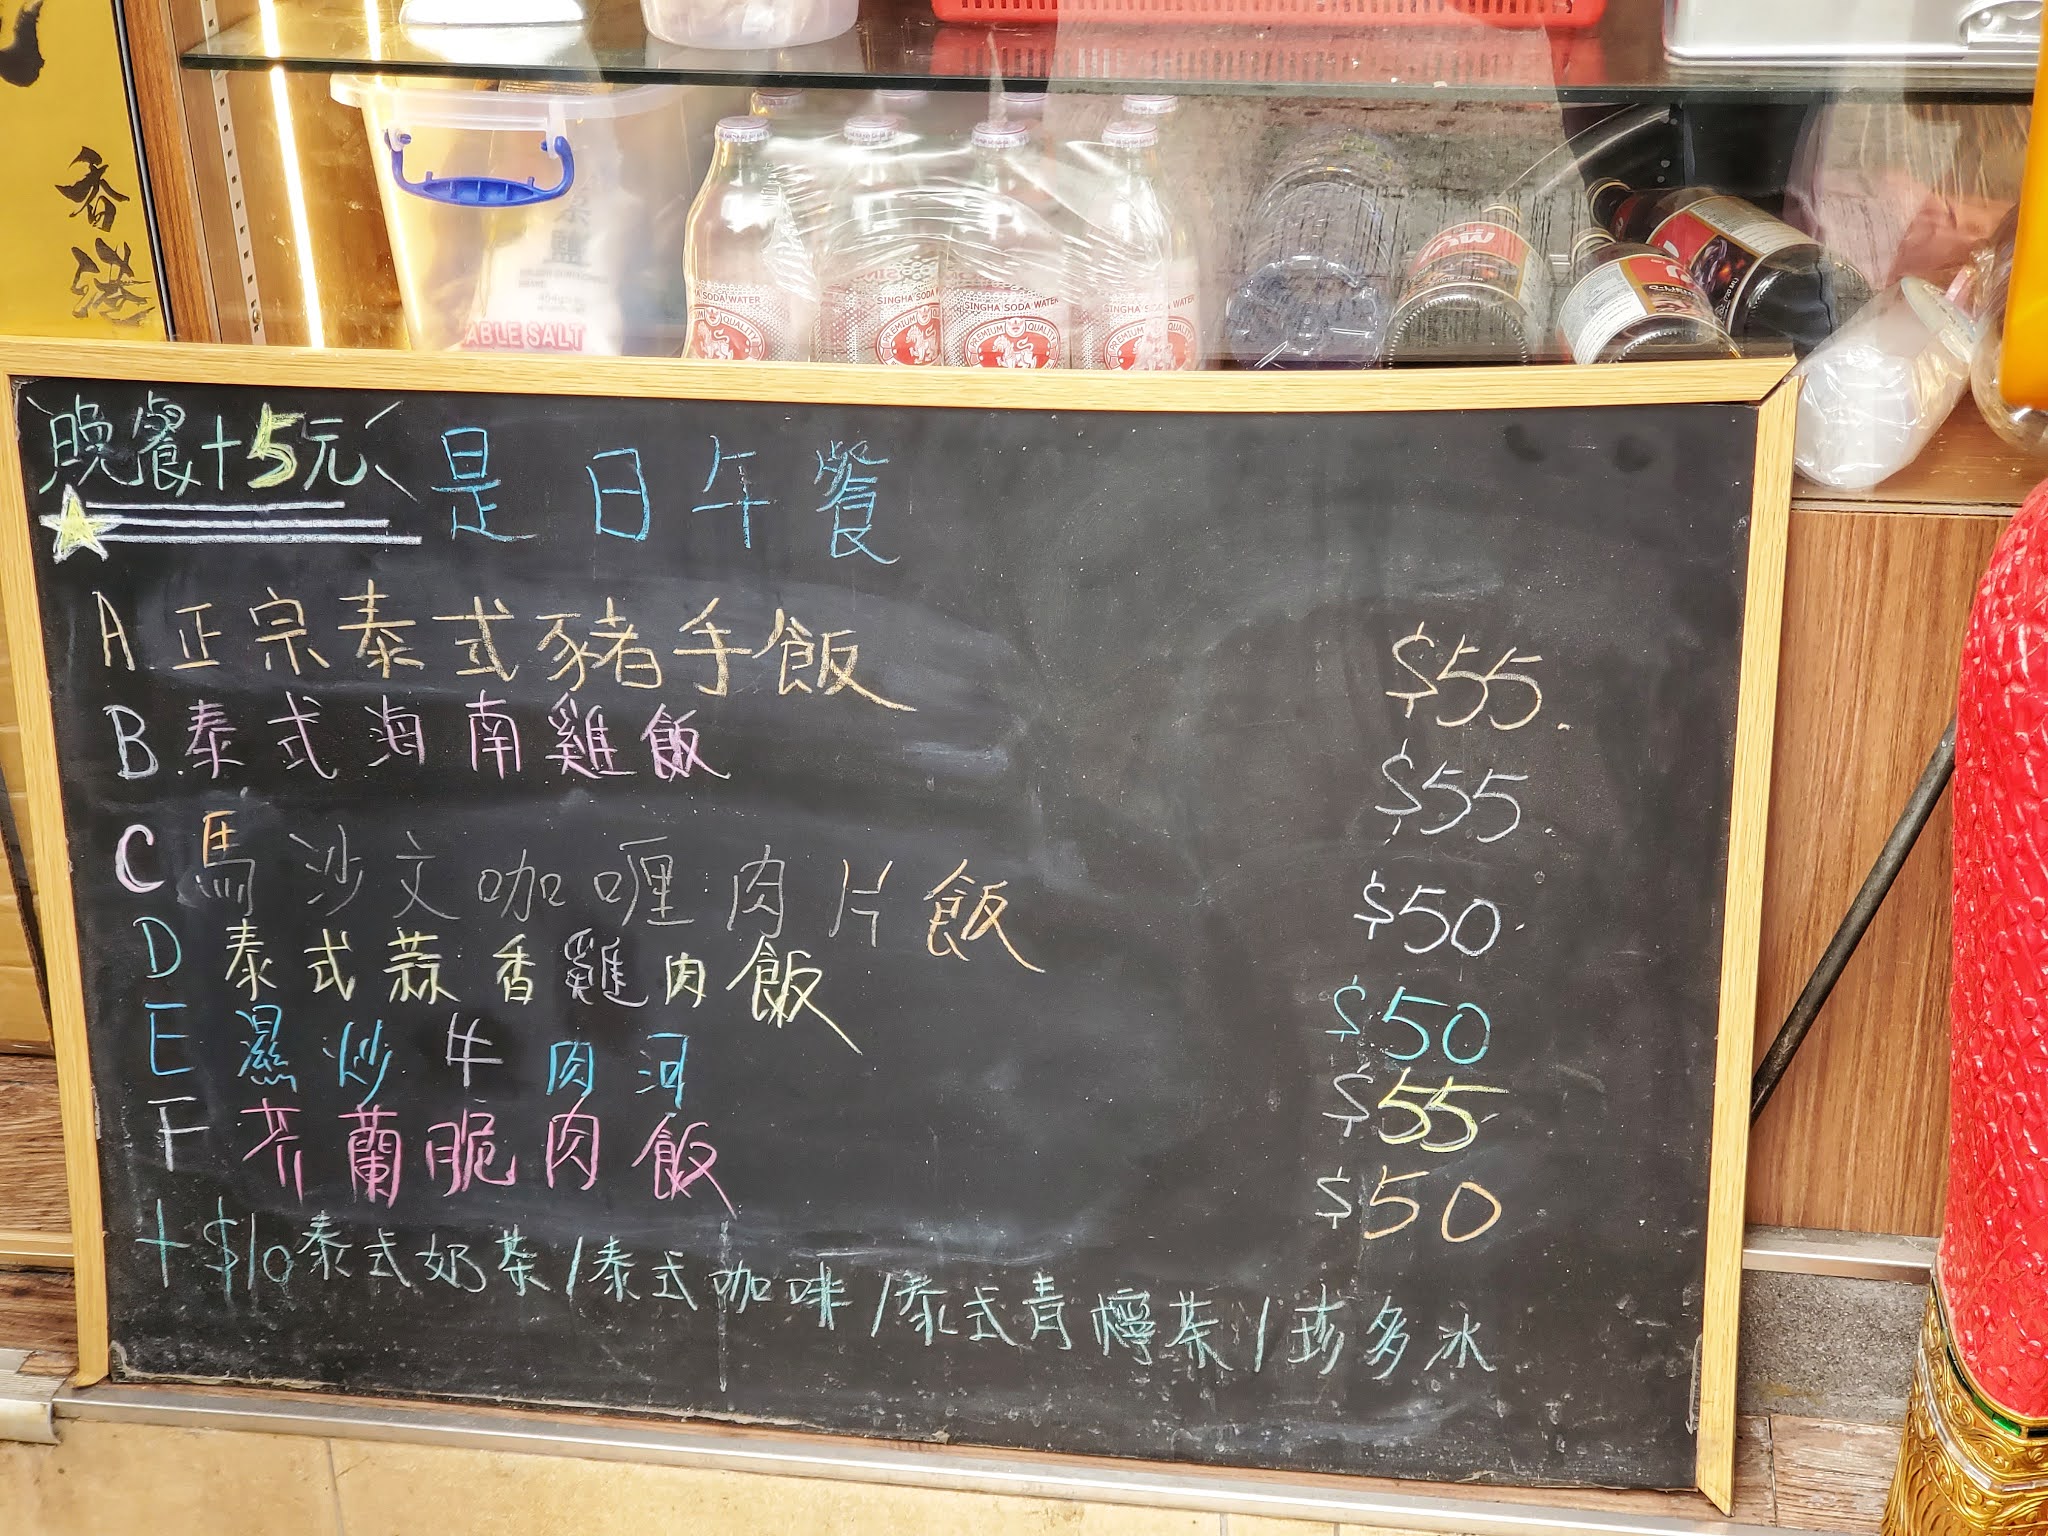 香港
TABLE SALT
SINGHA SODA WATER
PREMIUM QUALITY
SINGHA SODA WATER
PREMIUM QUALITY
SINGHA SODA WATER
PREMIUM QUALITY
晚餐+5元
是日午餐
A 正宗泰式豬手飯 $55
B 泰式海南雞飯 $55
C 馬沙文咖喱肉片飯 $50
D 泰式蒜香雞肉飯 $50
E 濕炒牛肉河 $55
F 芥蘭脆肉飯 $50
+$10泰式奶茶/泰式咖啡/泰式青檸茶/珍多冰